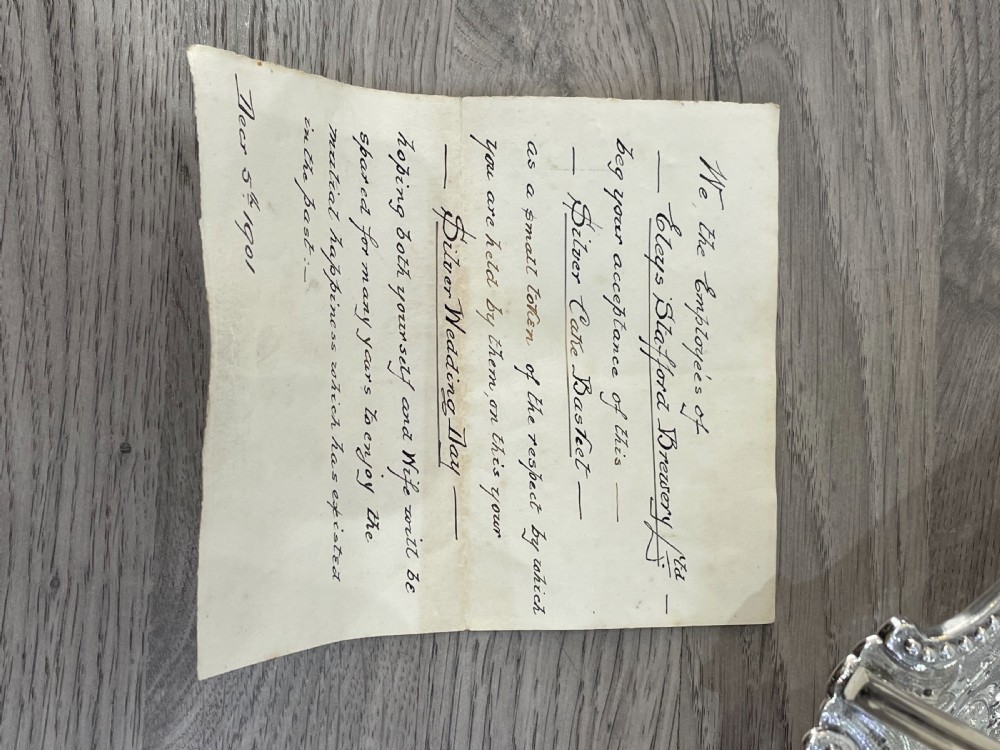 We, the Employeés of
— Eleys Stafford Brewery Ld —
beg your acceptance of this —
— Silver Cake Basket —
as a small token of the respect by which
you are held by them, on this your
— Silver Wedding Day —
hoping both yourself and Wife will be
spared for many years to enjoy the
mutual happiness which has existed
in the past :—
Decr 5th 1901